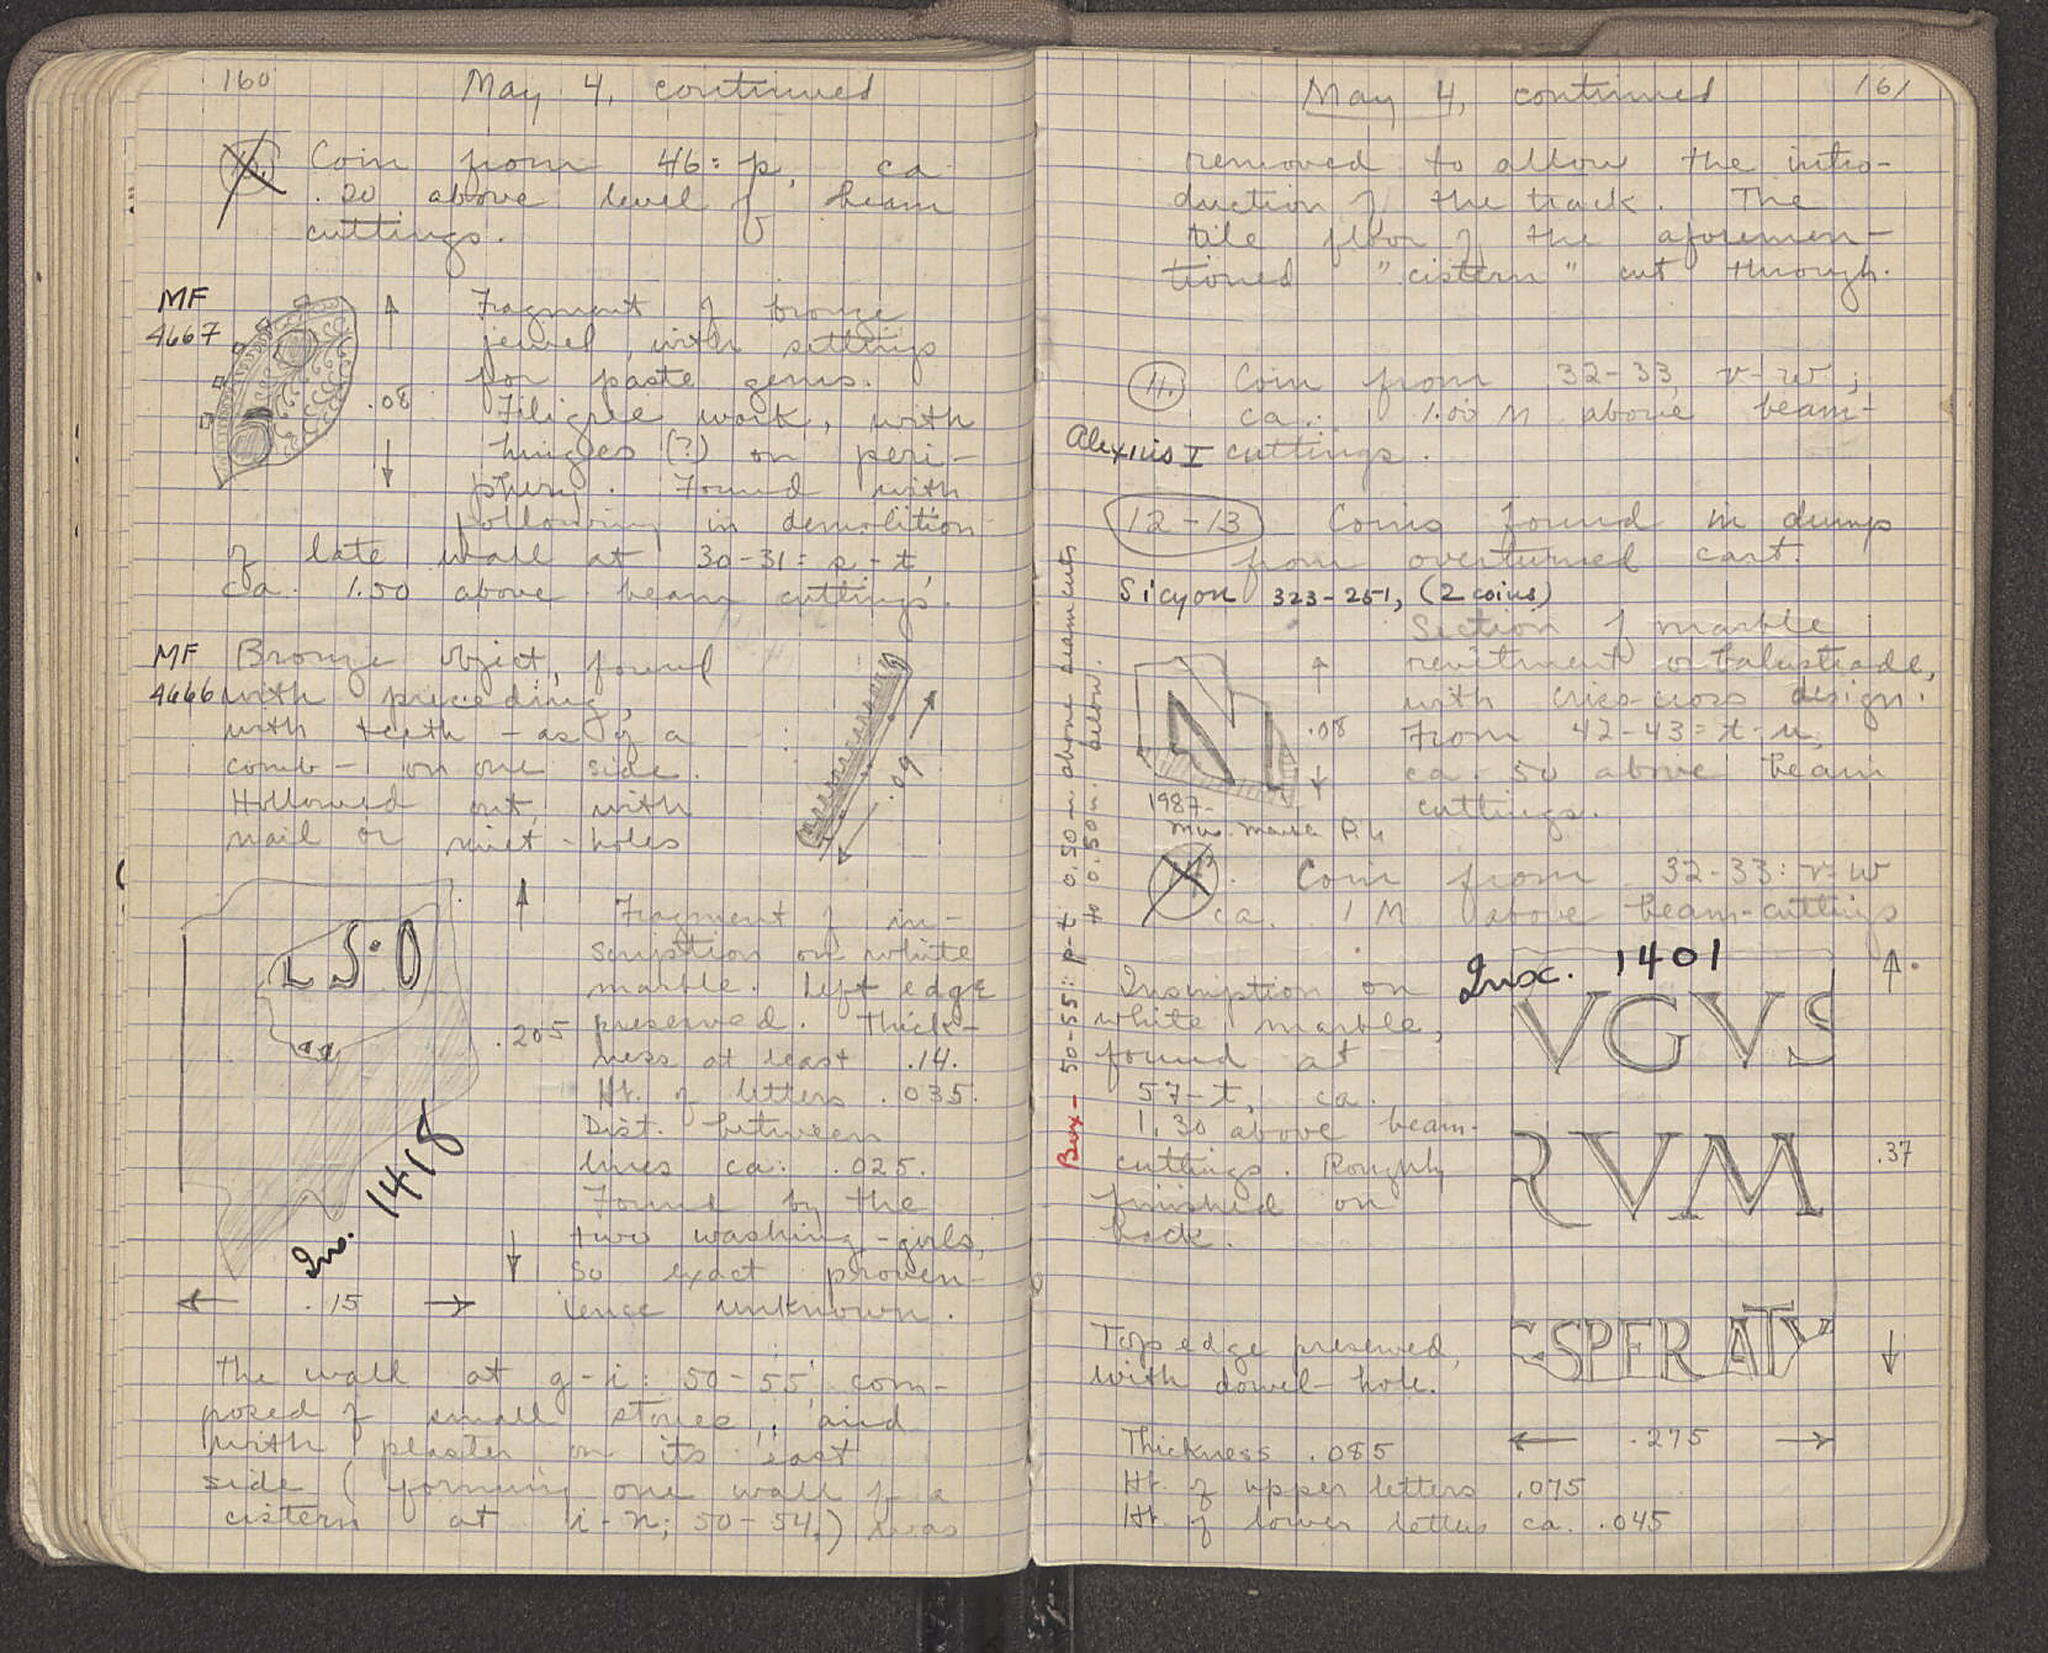 160
May 4, continued
Coin from 46: p, ca
.20 above level of beam
cuttings.
MF
4667
.08
Fragment of bronze
jewel, with settings
for paste gems.
Filigree work, with
hinges (?) on peri-
phery. Found with
following in demolition
of late wall at 30-31: p-t,
ca. 1.50 above beam cuttings.
MF
4666
Bronze object, found
with preceding,
with teeth - as of a
comb - on one side.
Hollowed out, with
nail or rivet-holes
.09
L S · O
.205
Inv. 1418
.15
Fragment of in-
scription on white
marble. Left edge
preserved. Thick-
ness at least .14.
Ht. of letters .035.
Dist. between
lines ca. .025.
Found by the
two washing-girls,
so exact proven-
ience unknown.
The wall at g-i: 50-55, com-
posed of small stones, and
with plaster on its east
side (forming one wall of a
cistern at i-n; 50-54,) was
May 4, continued
161
removed to allow the intro-
duction of the track. The
tile floor of the aforemen-
tioned "cistern" cut through.
11.
Coin from 32-33, v-w;
ca. 1.00 M above beam-
cuttings.
Alexius I
12-13
Coins found in dump
from overturned cart.
Sicyon 323-251, (2 coins)
Section of marble
revetment or balustrade,
with criss-cross design.
From 42-43: t-u,
ca .50 above beam
cuttings.
.08
1987-
Coin from 32-33: v-w
ca. 1 M above beam-cuttings
Box - 50-55: p-t 0.50 m. above beam cuts
to 0.50 m. below.
Inscription on
white marble,
found at
57-t, ca.
1.30 above beam-
cuttings. Roughly
finished on
back.
Insc. 1401
VGVS
RVM
ESPERATV
.37
.275
Top edge preserved,
with dowel-hole.
Thickness .085
Ht. of upper letters .075
Ht. of lower letters ca. .045